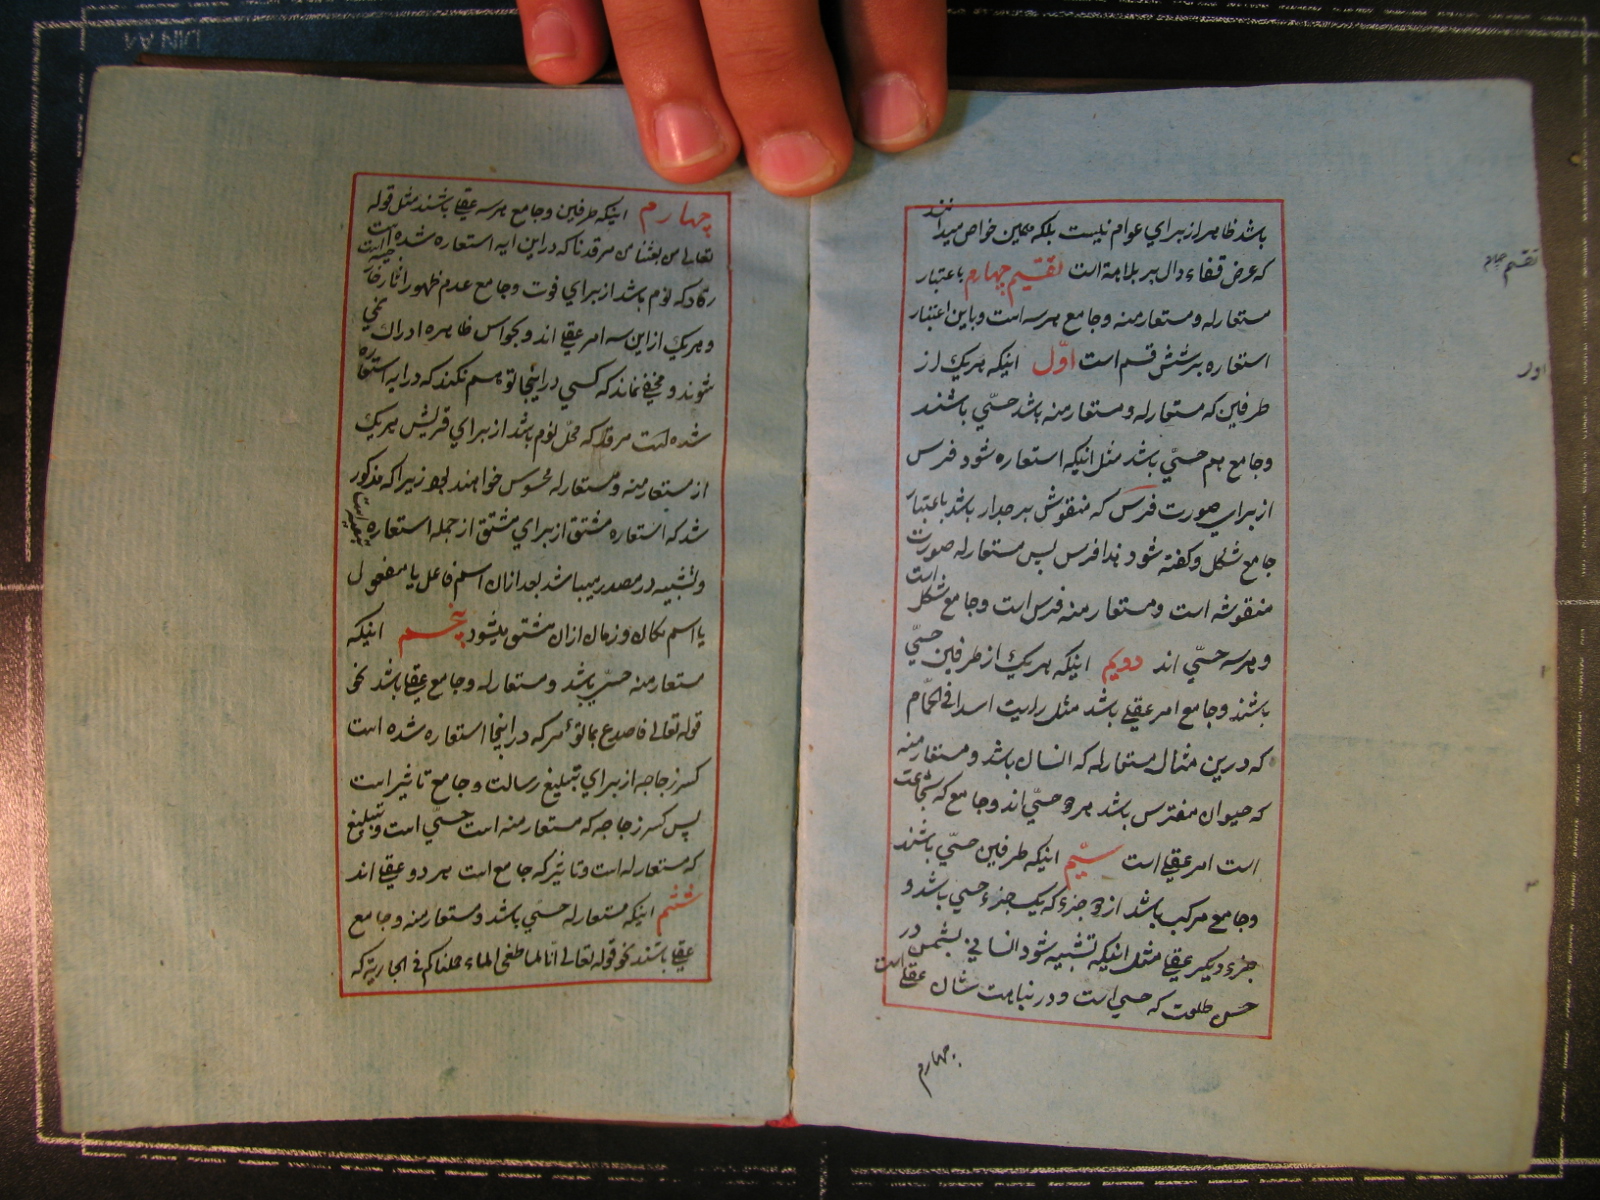 باشد ظاهر از برای عوام نیست بلکه همین خواص میدانند
که عرض قفاء دال بر بلاهة است تقسیم چهارم باعتبار
مستعارله و مستعارمنه و جامع هر سه است و باین اعتبار
استعاره بر شش قسم است اوّل اینکه هریک از
طرفین که مستعارله و مستعارمنه باشد حسّی باشند
و جامع هم حسّی باشد مثل اینکه استعاره شود فرس
از برای صورت فرس که منقوش بر جدار باشد باعتبار
جامع شکل و گفته شود هذا فرس پس مستعارله صورت
منقوشه است و مستعارمنه فرس است و جامع شکل است
و هر سه حسّی اند دویم اینکه هریک از طرفین حسّی
باشند و جامع امر عقلی باشد مثل رایت اسدا فی الحمّام
که درین مثال مستعارله که انسان باشد و مستعارمنه
که حیوان مفترس باشد هر 2 حسّی اند و جامع که شجاعت
است امر عقلی است سیّم اینکه طرفین حسّی باشند
و جامع مرکب باشد از 2 جزء که یک جزء حسی باشد و
جزء دیگر عقلی مثل اینکه تشبیه شود انسانی بشمس در
حسن طلعت که حسی است و در نباهت شان عقلی است
چهارم
تقسیم چهارم
اور
چهارم اینکه طرفین و جامع هر سه عقلی باشند مثل قوله
تعالی من بعثنا من مرقدنا که در این ایه استعاره شده است
رقاد که نوم باشد از برای فوت و جامع عدم ظهور اثار خارجیه است
و هریک از این سه امر عقلی اند و بحواس ظاهره ادراک نمی
شوند و مخفی نماند که کسی در اینجا توهم نکند که در ایه استعاره
شده است مرقد که محل نوم باشد از برای قبر پس هریک
از مستعارمنه و مستعارله محسوس خواهند بود زیرا که مذکور
شد که استعاره مشتق از برای مشتق از جمله استعاره تبعیه است
و تشبیه در مصدر میباشد بعد ازان اسم فاعل یا مفعول
یا اسم مکان و زمان ازان مشتق میشود پنجم اینکه
مستعارمنه حسّی باشد و مستعارله و جامع عقلی باشد نحو
قوله تعالی فاصدع بما تؤمر که در اینجا استعاره شده است
کسر زجاجه از برای تبلیغ رسالت و جامع تاثیر است
پس کسر زجاجه که مستعارمنه است حسّی است و تبلیغ
که مستعارله است و تاثیر که جامع است هر دو عقلی اند
ششم اینکه مستعارله حسّی باشد و مستعارمنه و جامع
عقلی باشند نحو قوله تعالی انّا لما طغی الماء حملناکم فی الجاریة که